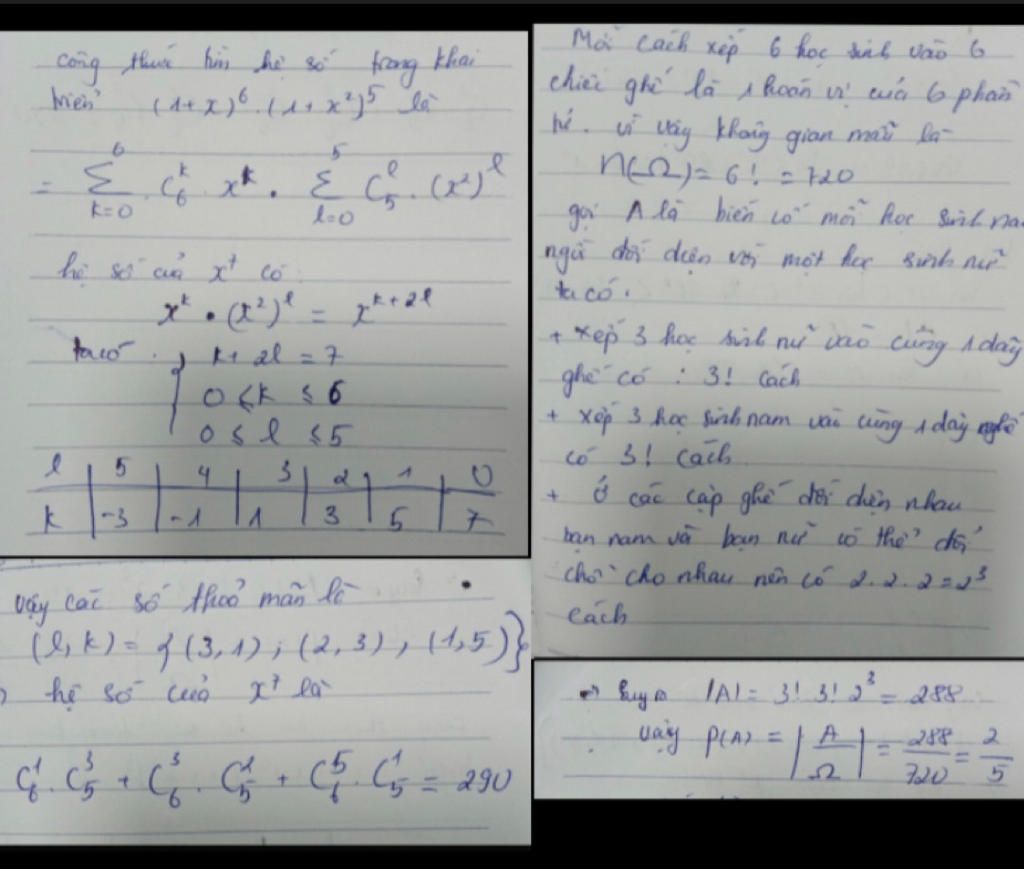 công thức tìm hệ số trong khai
triển (1+x)^6 . (1+x²)^5 là
= Σ_{k=0}^{6} C_6^k . x^k . Σ_{l=0}^{5} C_5^l . (x²)^l
hệ số của x^7 có
x^k . (x²)^l = x^{k+2l}
ta có { k + 2l = 7
0 ≤ k ≤ 6
0 ≤ l ≤ 5
l | 5 | 4 | 3 | 2 | 1 | 0
k | -3 | -1 | 1 | 3 | 5 | 7
vậy các số thoả mãn là
(l, k) = {(3,1) ; (2,3) , (1,5)}
hệ số của x^7 là
C_6^1 . C_5^3 + C_6^3 . C_5^2 + C_6^5 . C_5^1 = 290
Mỗi cách xếp 6 học sinh vào 6
chiếc ghế là 1 hoán vị của 6 phần
tử. vì vậy không gian mẫu là
n(Ω) = 6! = 720
gọi A là biến cố mỗi học sinh na
ngồi đối diện với một học sinh nữ
ta có.
+ xếp 3 học sinh nữ vào cùng 1 dãy
ghế có : 3! cách
+ xếp 3 học sinh nam vào cùng 1 dãy ghế
có 3! cách
+ Ở các cặp ghế đối diện nhau
bạn nam và bạn nữ có thể đổi
chỗ cho nhau nên có 2.2.2 = 2³
cách
Suy ra |A| = 3! 3! 2³ = 288
vậy P(A) = |A/Ω| = 288/720 = 2/5